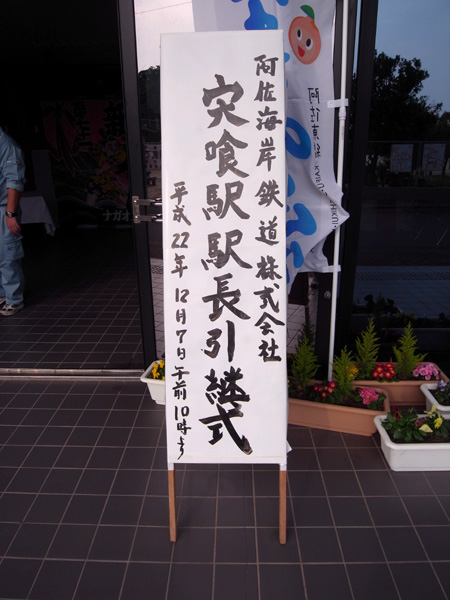 阿佐海岸鉄道株式会社
宍喰駅駅長引継式
平成22年12月7日午前10時より
阿佐東線
ナガオ